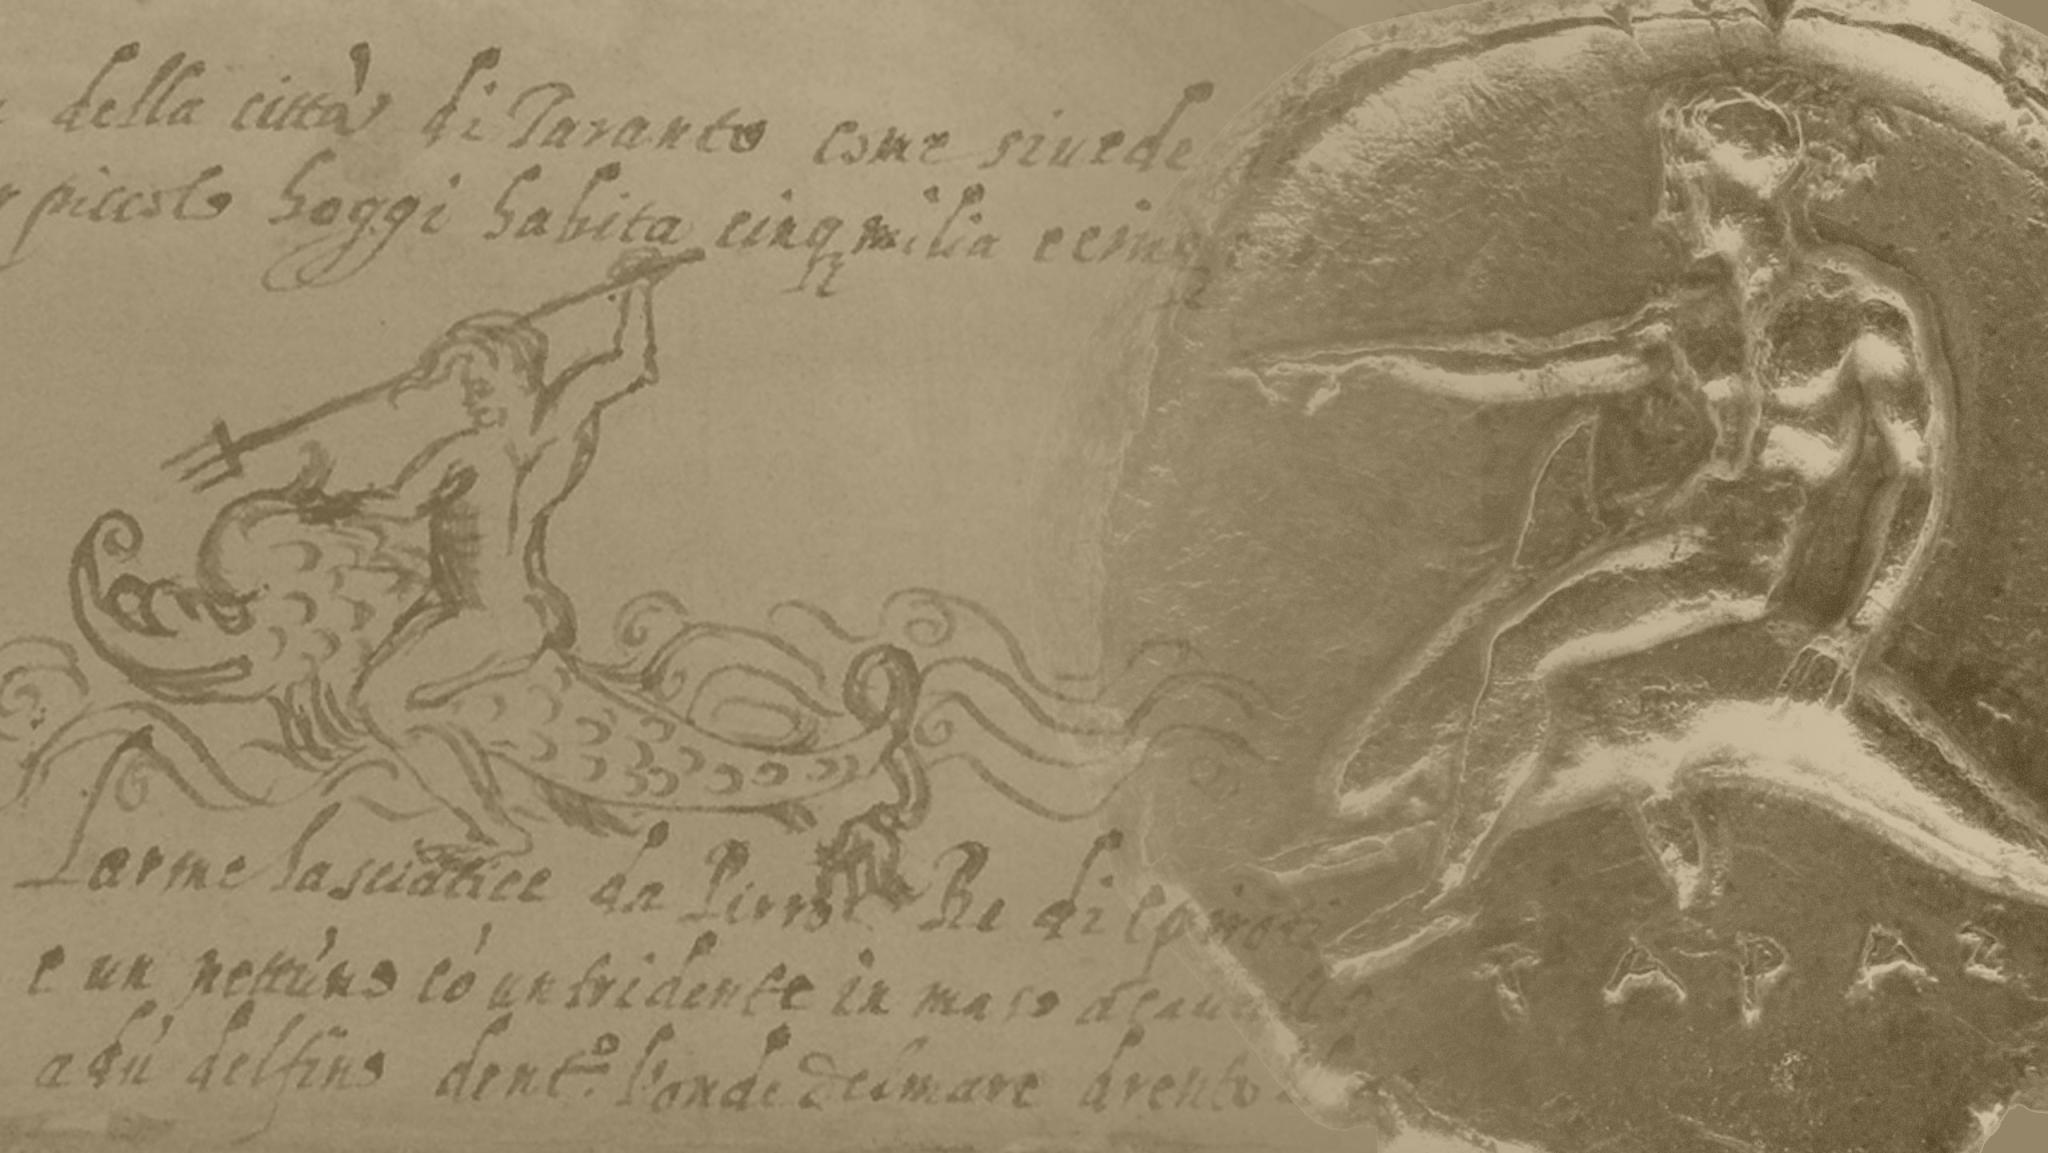 della città di Taranto come si uede
piccolo hoggi habita cinq milia e cinq
Larme lasciatice da Pirro Re di epiroti
e un nettuno có un tridente in mano a cauallo
adú delfino dent.º l'onde del mare drento
ΤΑΡΑΣ